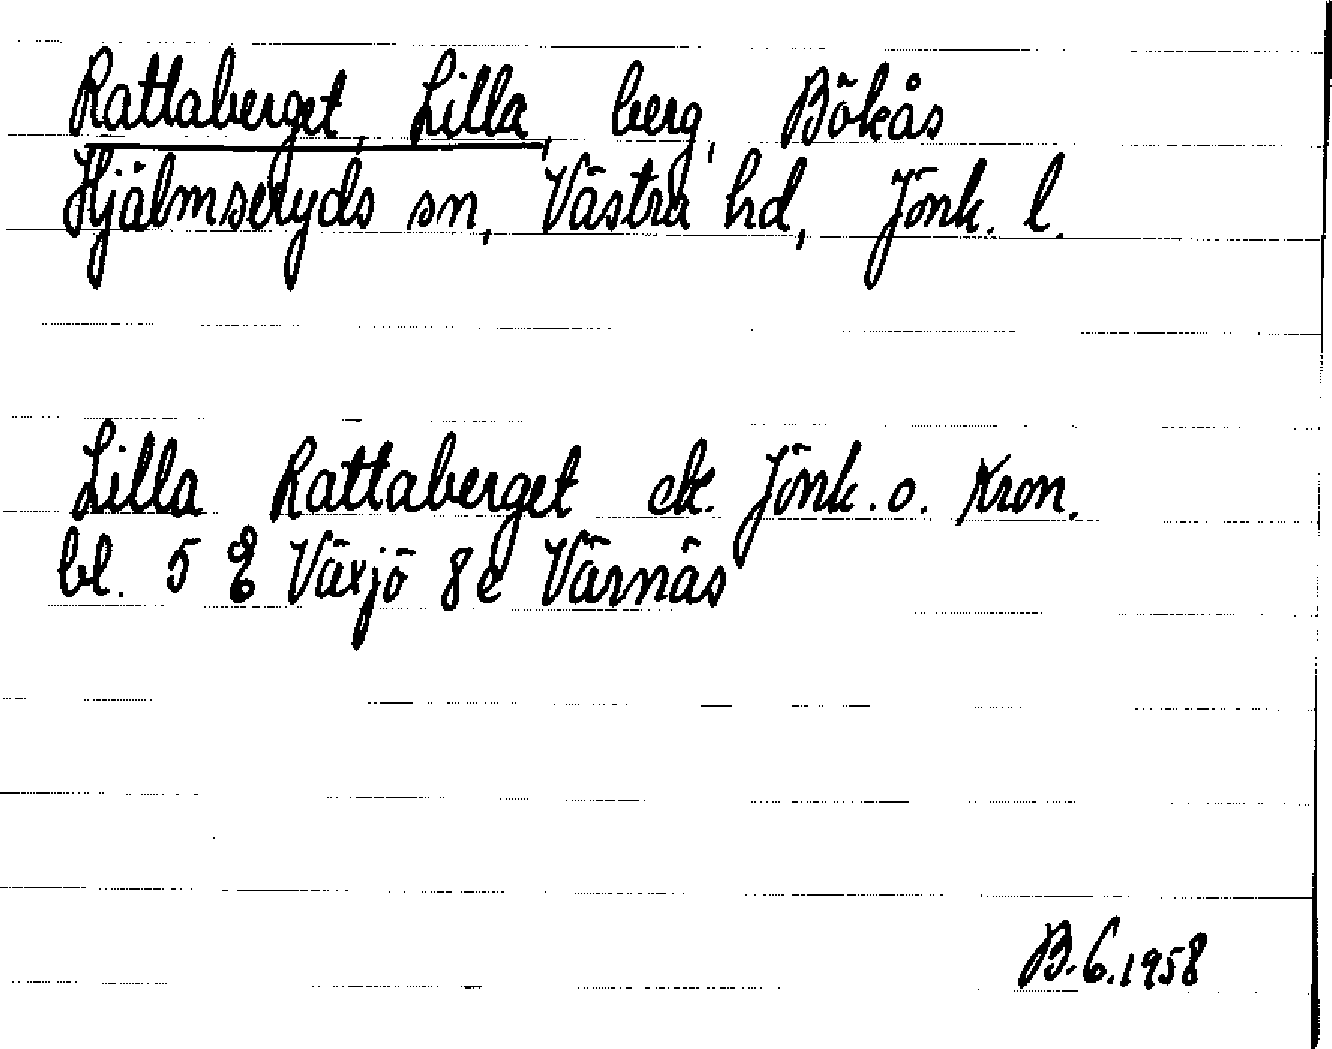 Rattaberget, Lilla, berg, Bökås
Hjälmseryds sn, Västra hd, Jönk. l.
Lilla Rattaberget ek. Jönk. o. Kron.
bl. 5 E Växjö 8e Värnäs
B.G.1958